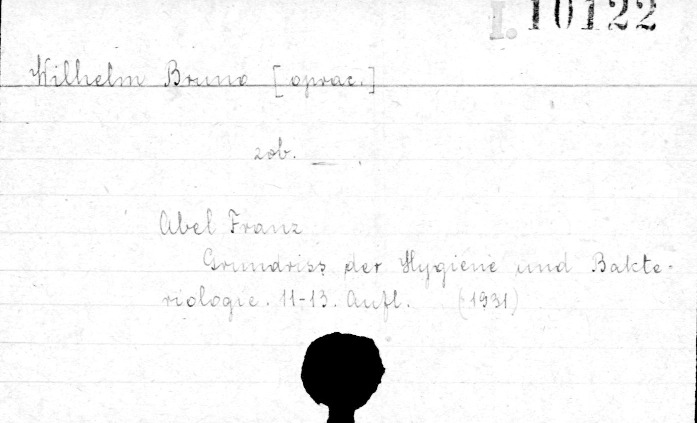 I. 10122
Wilhelm Bruno [oprac.]
zob. —
Abel Franz
Grundriss der Hygiene und Bakte-
riologie. 11-13. Aufl. (1931)